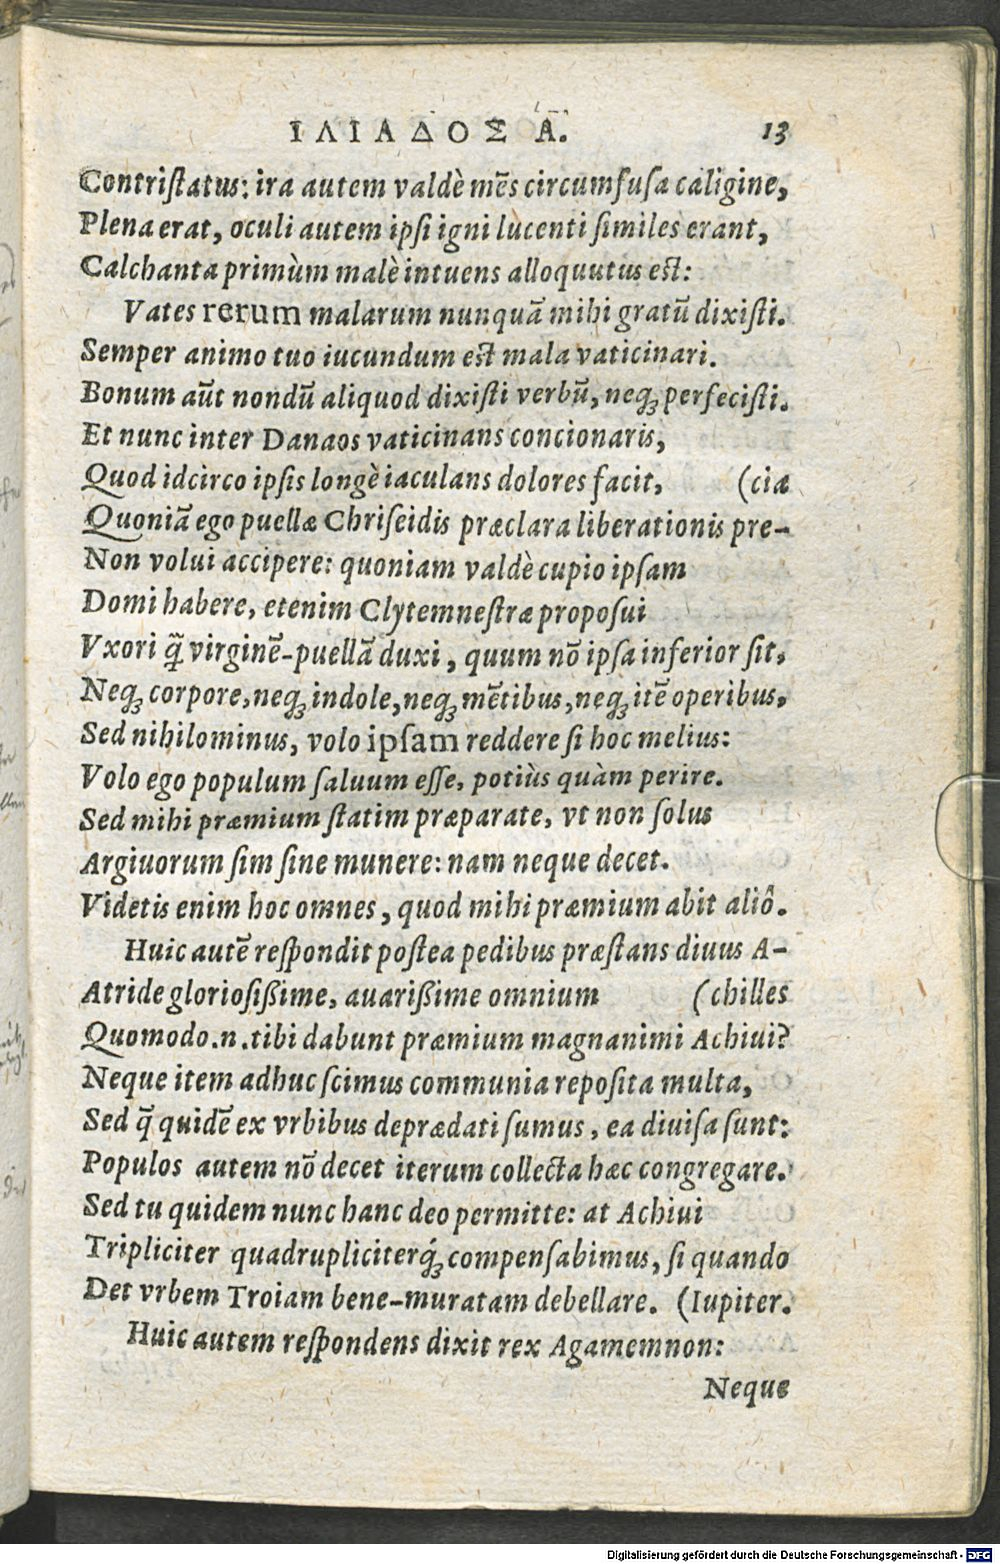 ΙΛΙΑΔΟΣ Α. 13
Contriſtatus: ira autem valdè mēs circumfuſa caligine,
Plena erat, oculi autem ipſi igni lucenti ſimiles erant,
Calchanta primùm malè intuens alloquutus est:
Vates rerum malarum nunquā mihi gratū dixiſti.
Semper animo tuo iucundum est mala vaticinari.
Bonum aūt nondū aliquod dixiſti verbū, neqꝫ perfeciſti.
Et nunc inter Danaos vaticinans concionaris,
Quod idcirco ipſis longè iaculans dolores facit, (ciæ
Quoniā ego puellæ Chriſeidis præclara liberationis pre-
Non volui accipere: quoniam valdè cupio ipſam
Domi habere, etenim Clytemneſtræ propoſui
Vxori q̄ virginē-puellā duxi, quum nō ipſa inferior ſit,
Neqꝫ corpore, neqꝫ indole, neqꝫ mētibus, neqꝫ itē operibus,
Sed nihilominus, volo ipſam reddere ſi hoc melius:
Volo ego populum ſaluum eſſe, potiùs quàm perire.
Sed mihi præmium ſtatim præparate, vt non ſolus
Argiuorum ſim ſine munere: nam neque decet.
Videtis enim hoc omnes, quod mihi præmium abit aliô.
Huic autē reſpondit poſtea pedibus præſtans diuus A-
Atride glorioſißime, auarißime omnium (chilles
Quomodo .n. tibi dabunt præmium magnanimi Achiui?
Neque item adhuc ſcimus communia repoſita multa,
Sed q̄ quidē ex vrbibus deprædati ſumus, ea diuiſa ſunt:
Populos autem nō decet iterum collecta hæc congregare.
Sed tu quidem nunc hanc deo permitte: at Achiui
Tripliciter quadrupliciterq́ꝫ compenſabimus, ſi quando
Det vrbem Troiam bene-muratam debellare. (Iupiter.
Huic autem reſpondens dixit rex Agamemnon:
Neque
Digitalisierung gefördert durch die Deutsche Forschungsgemeinschaft - DFG